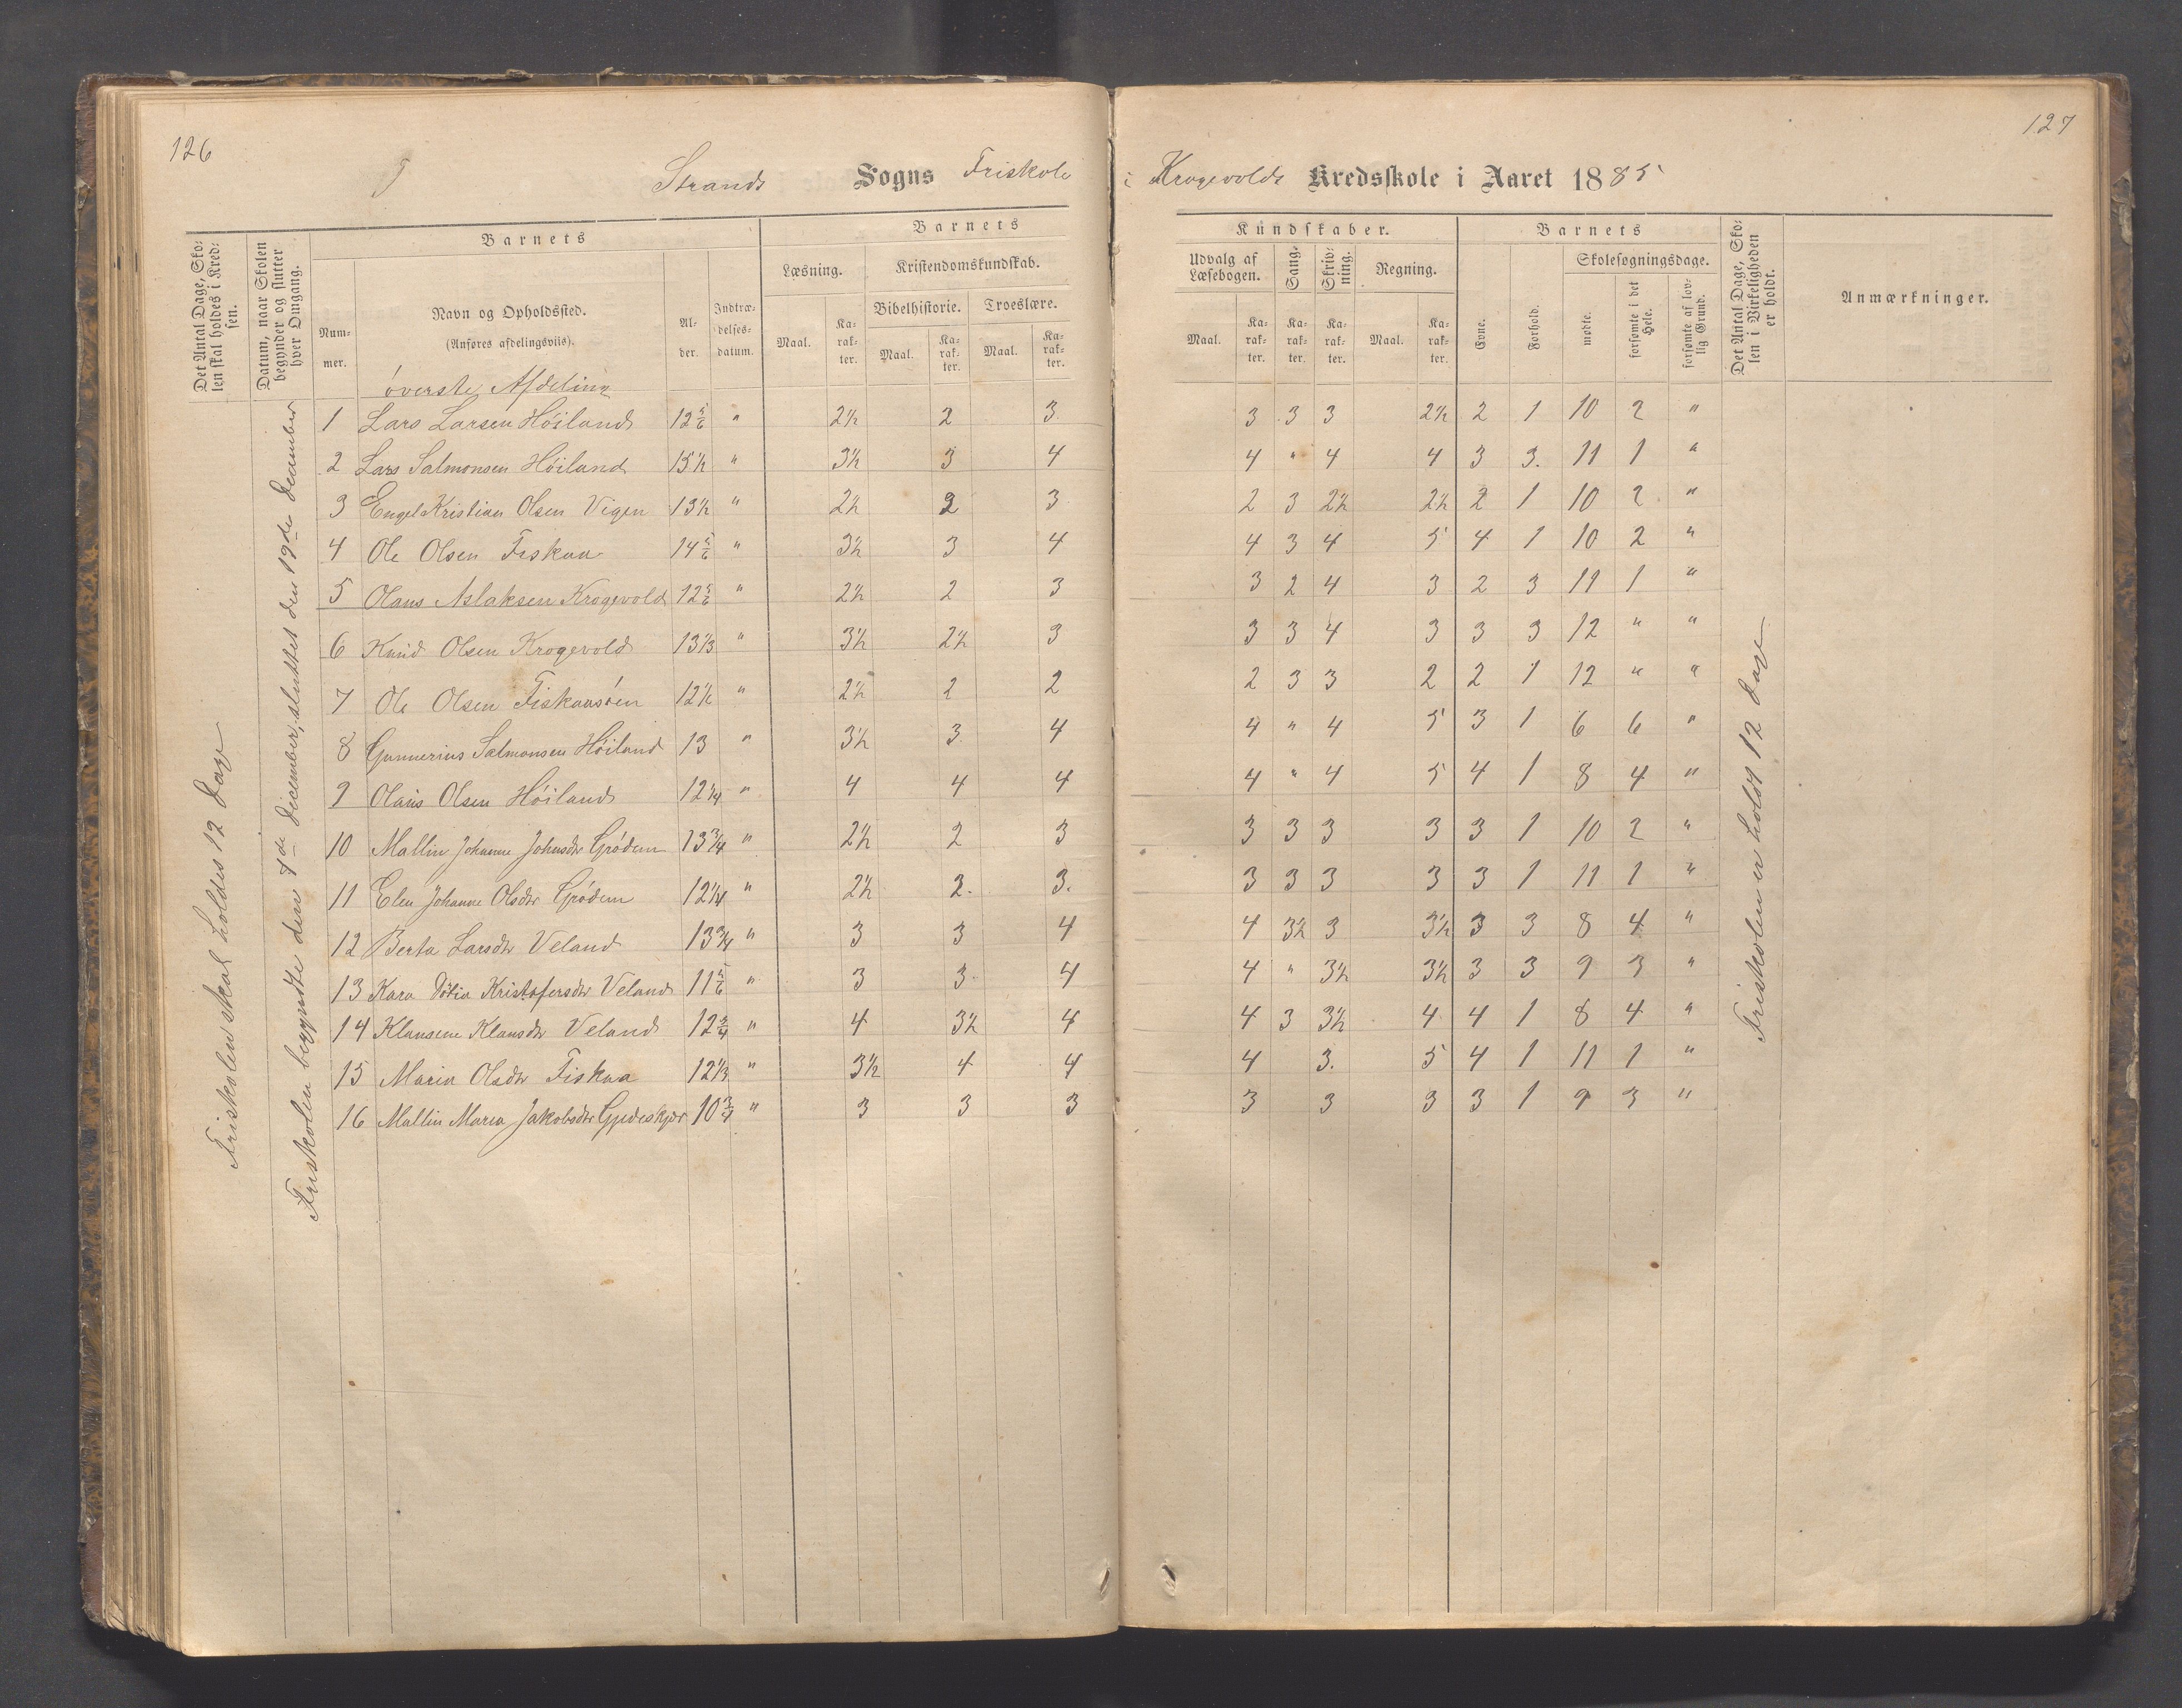 126
127
I Strands Sogns Friskole i Krogevolds Kredsskole i Aaret 1885
Det Antal Dage, Skolen skal holdes i Kredsen.
Datum, naar Skolen begynder og slutter hver Omgang.
Barnets
Barnets
Kundskaber.
Barnets
Det Antal Dage, Skolen i Virkeligheden er holdt.
Anmærkninger.
Nummer.
Navn og Opholdssted.
(Anføres afdelingsviis).
Alder.
Indtrædelsesdatum.
Læsning.
Kristendomskundskab.
Bibelhistorie.
Troeslære.
Udvalg af Læsebogen.
Sang.
Skrivning.
Regning.
Evne.
Forhold.
Skolesøgningsdage.
mødte.
forsømte i det Hele.
forsømte af lovlig Grund.
Maal. Karakter. Maal. Karakter. Maal. Karakter. Maal. Karakter. Karakter. Karakter. Maal. Karakter.
øverste Afdeling
1 Lars Larsen Høiland 12 5/6 " 2½ 2 3 3 3 3 2½ 2 1 10 2 "
2 Lars Salmonsen Høiland 15½ " 3½ 3 4 4 " 4 4 3 3. 11 1 "
3 Engel Kristian Olsen Vigen 13½ " 2½ 2 3 2 3 2½ 2½ 2 1 10 2 "
4 Ole Olsen Fiskaa 14 5/6 " 3½ 3 4 4 3 4 5 4 1 10 2 "
5 Olaus Aslaksen Krogevold 12 5/6 " 2½ 2 3 3 2 4 3 2 3 11 1 "
6 Knud Olsen Krogevold 13 1/3 " 3½ 2½ 3 3 3 4 3 3 3 12 " "
7 Ole Olsen Fiskaasøen 12½ " 2½ 2 2 2 3 3 2 2 1 12 " "
8 Gunnerius Salmonsen Høiland 13 " 3½ 3 4 4 " 4 5 3 1 6 6 "
9 Olaus Olsen Høiland 12¼ " 4 4 4 4 " 4 5 4 1 8 4 "
10 Mallin Johanne Johnsdtr Grödem 13¾ " 2½ 2 3 3 3 3 3 3 1 10 2 "
11 Elen Johanne Olsdtr Grödem 12¼ " 2½ 2. 3. 3 3 3 3 3 1 11 1 "
12 Berta Larsdtr Veland 13¾ " 3 3 4 4 3½ 3 3½ 3 3 8 4 "
13 Kara Kristofersdtr Veland 11 5/6 " 3 3 4 4 " 3½ 3½ 3 3 9 3 "
14 Klausene Klausdtr Veland 12¾ " 4 3½ 4 4 3 3½ 4 4 1 8 4 "
15 Maria Olsdtr Fiskaa 12 1/3 " 3½ 4 4 4 3. 5 4 1 11 1 "
16 Mallin Maria Jakobsdtr 10¾ " 3 3 3 3 3 3 3 1 9 3 "
Friskolen skal holdes 12 Dage
Friskolen begyndte den 4de December, sluttet den 19de December
Friskolen er holdt 12 Dage